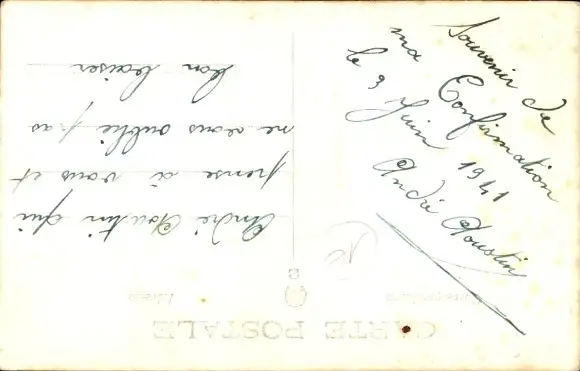 Souvenir de
ma Confirmation
le 9 Juin 1941
André Goustin
André Goustin qui
pense à vous et
ne vous oublie pas
bon baiser
CARTE POSTALE
Correspondance
Adresse